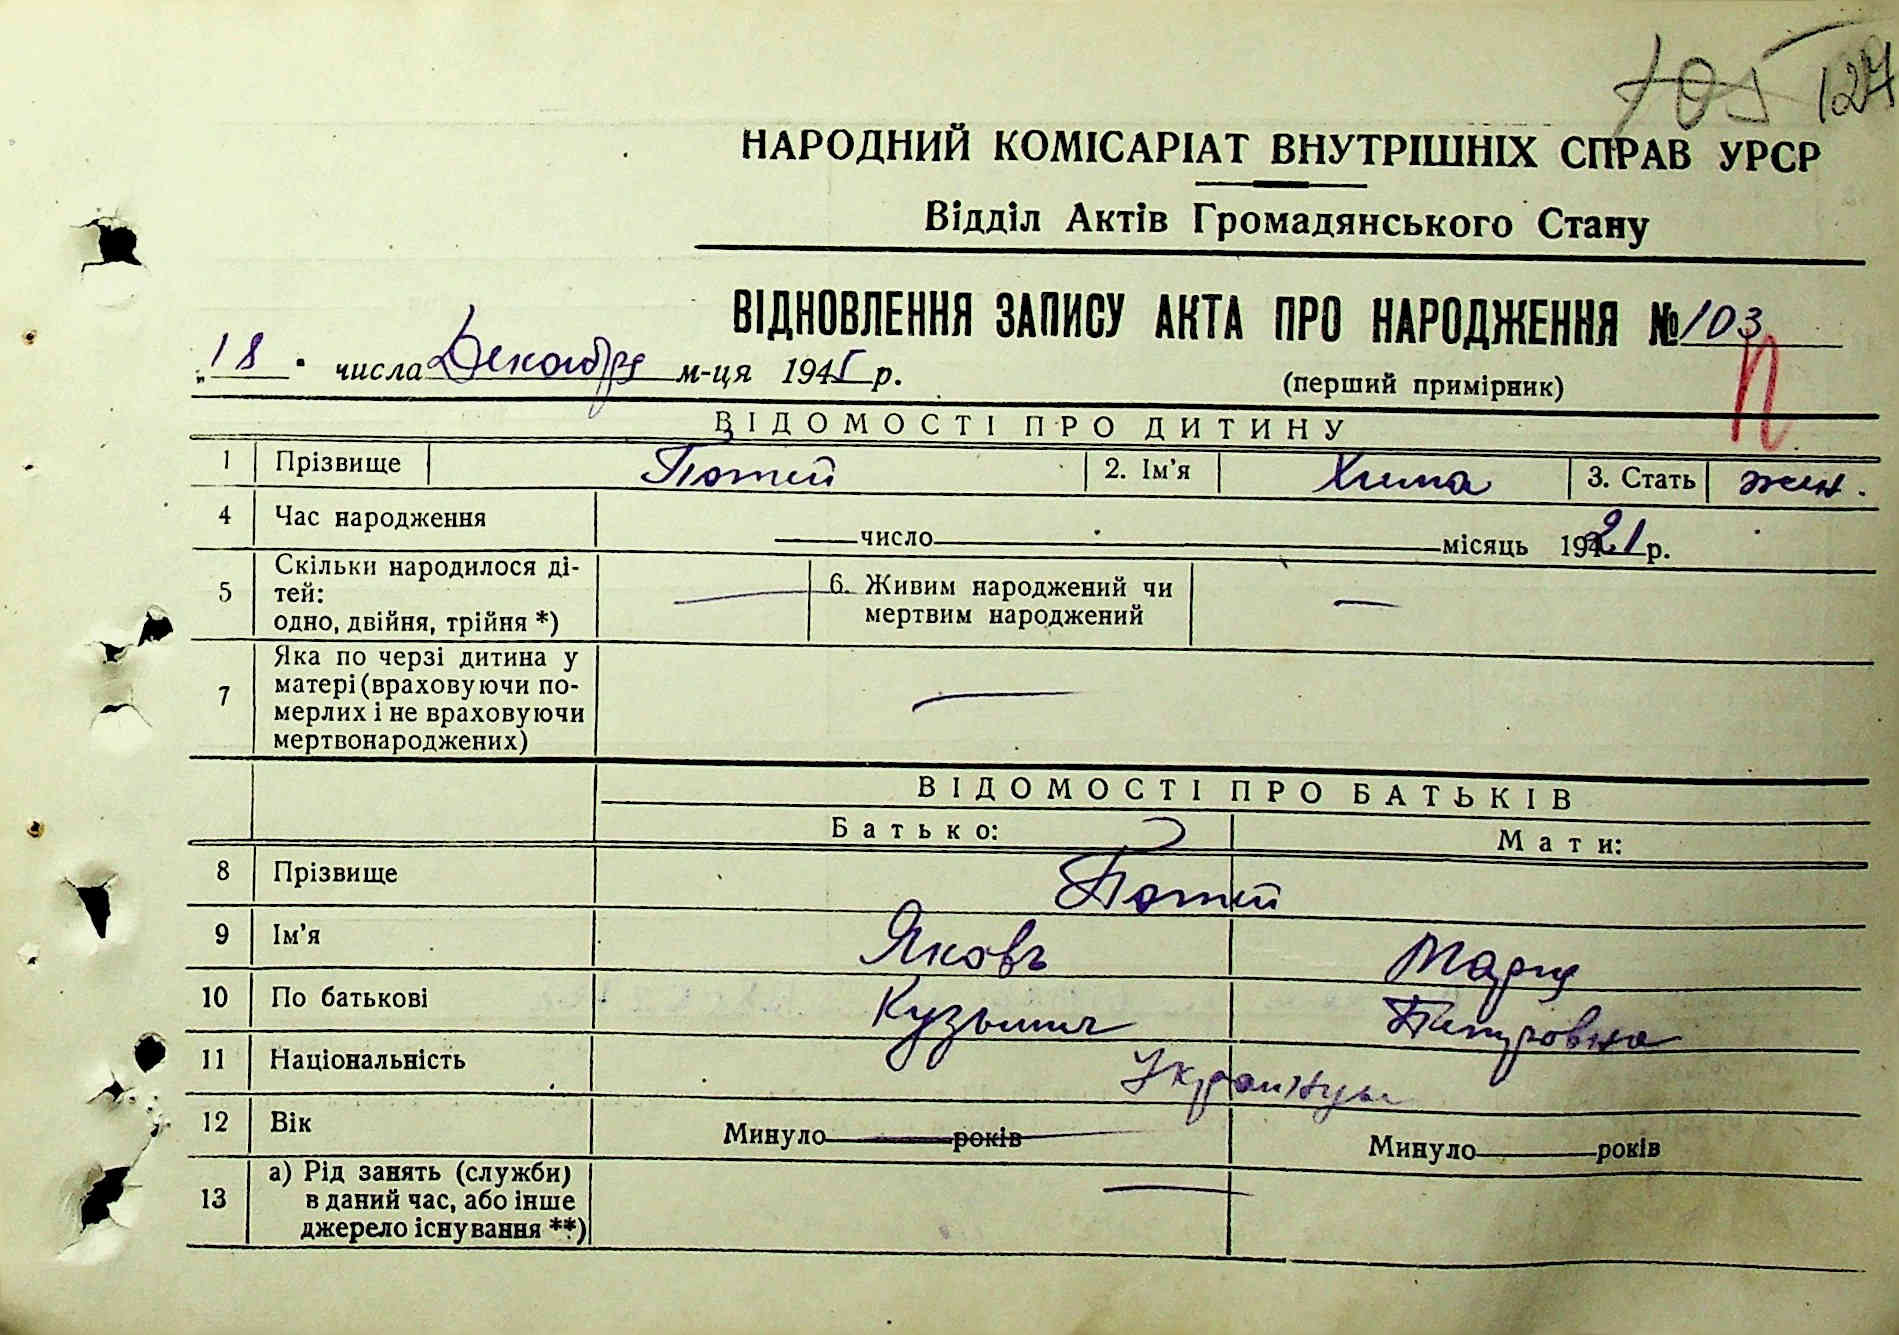 105 127
НАРОДНИЙ КОМІСАРІАТ ВНУТРІШНІХ СПРАВ УРСР
Відділ Актів Громадянського Стану
ВІДНОВЛЕННЯ ЗАПИСУ АКТА ПРО НАРОДЖЕННЯ № 103
„18" числа Декабря м-ця 1945 р.
(перший примірник)
П
ВІДОМОСТІ ПРО ДИТИНУ
1 Прізвище Потий 2. Ім'я Хима 3. Стать жен.
4 Час народження число місяць 1921 р.
5 Скільки народилося ді-
тей:
одно, двійня, трійня *) — 6. Живим народжений чи
мертвим народжений —
7 Яка по черзі дитина у
матері (враховуючи по-
мерлих і не враховуючи
мертвонароджених) —
ВІДОМОСТІ ПРО БАТЬКІВ
Батько: Мати:
8 Прізвище Потий
9 Ім'я Яковъ Мария
10 По батькові Кузьмич
11 Національність Украинцы
12 Вік Минуло років Минуло років
13 а) Рід занять (служби)
в даний час, або інше
джерело існування **) —